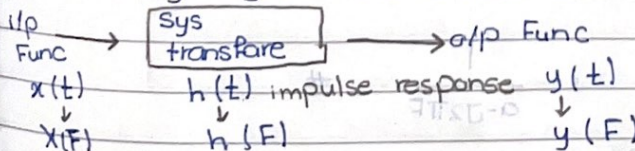 i/p Func → sys transfare → o/p Func
x(t) h(t) impulse response y(t)
↓ ↓ ↓
X(F) h(F) y(F)